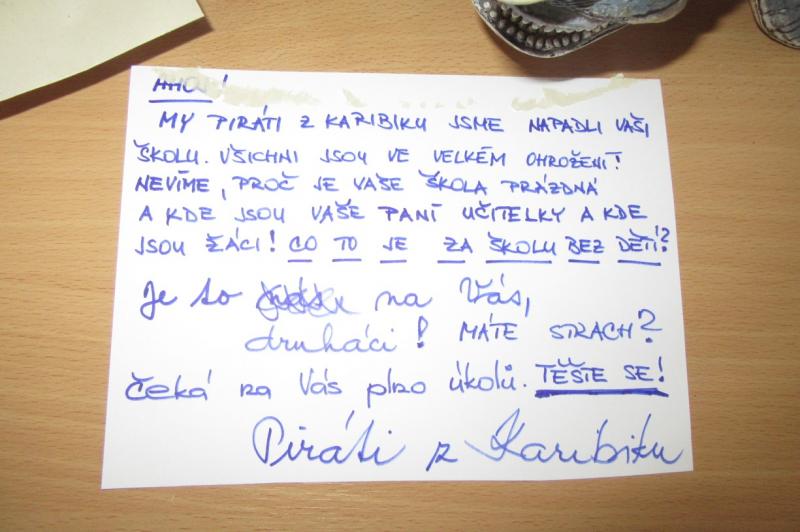 AHOJ!
MY PIRÁTI Z KARIBIKU JSME NAPADLI VAŠI
ŠKOLU. VŠICHNI JSOU VE VELKÉM OHROŽENÍ!
NEVÍME, PROČ JE VAŠE ŠKOLA PRÁZDNÁ
A KDE JSOU VAŠE PANÍ UČITELKY A KDE
JSOU ŽÁCI! CO TO JE ZA ŠKOLU BEZ DĚTÍ!?
Je to na Vás,
druháci! MÁTE STRACH?
Čeká na Vás plno úkolů. TĚŠTE SE!
Piráti z Karibiku